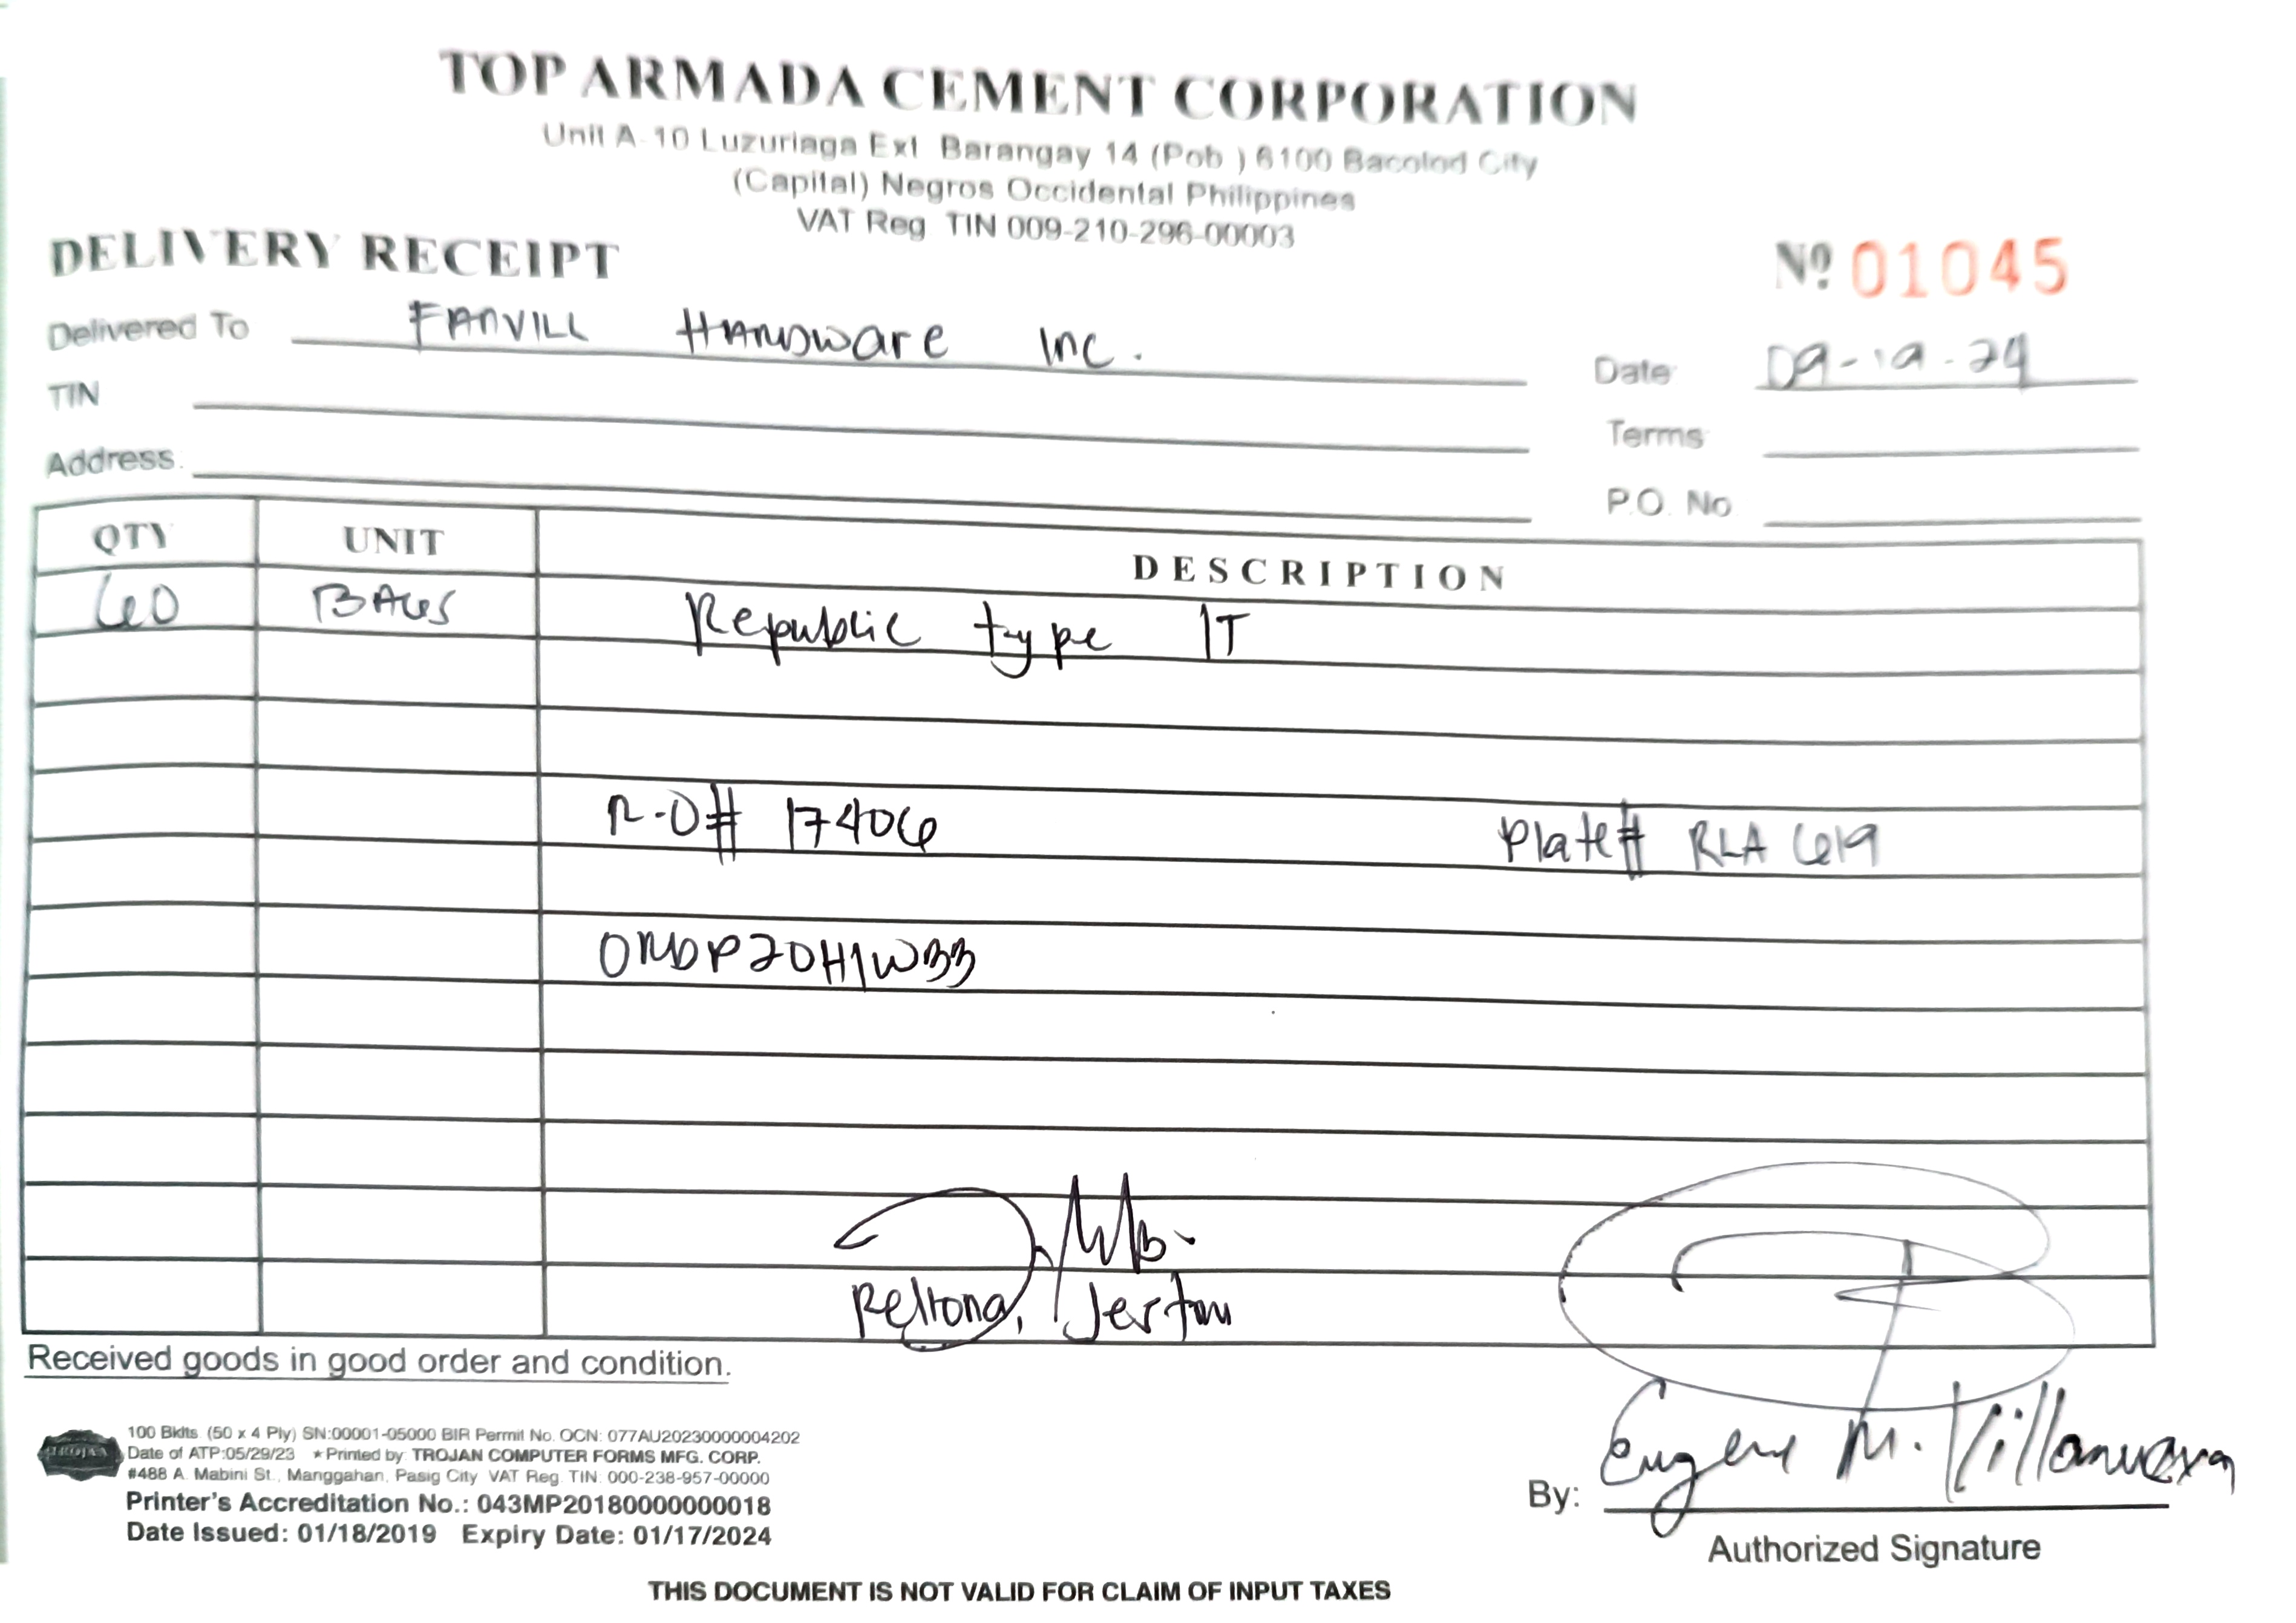 TOP ARMADA CEMENT CORPORATION
Unit A-10 Luzuriaga Ext Barangay 14 (Pob ) 6100 Bacolod City
(Capital) Negros Occidental Philippines
VAT Reg TIN 009-210-296-00003
DELIVERY RECEIPT
Nº 01045
Delivered To FANVILL Hardware Inc.
Date: 09-19-24
TIN
Terms
Address:
P.O. No.
QTY UNIT DESCRIPTION
60 BAGS Republic type 1T
R-O# 17406 Plate# RLA 619
0NDP20H1W33
Received goods in good order and condition.
TROJAN
100 Bklts. (50 x 4 Ply) SN:00001-05000 BIR Permit No. OCN: 077AU20230000004202
Date of ATP:05/29/23 ★Printed by: TROJAN COMPUTER FORMS MFG. CORP.
#488 A. Mabini St., Manggahan, Pasig City VAT Reg. TIN: 000-238-957-00000
Printer's Accreditation No.: 043MP20180000000018
Date Issued: 01/18/2019 Expiry Date: 01/17/2024
By: Eugene M. Villanueva
Authorized Signature
THIS DOCUMENT IS NOT VALID FOR CLAIM OF INPUT TAXES